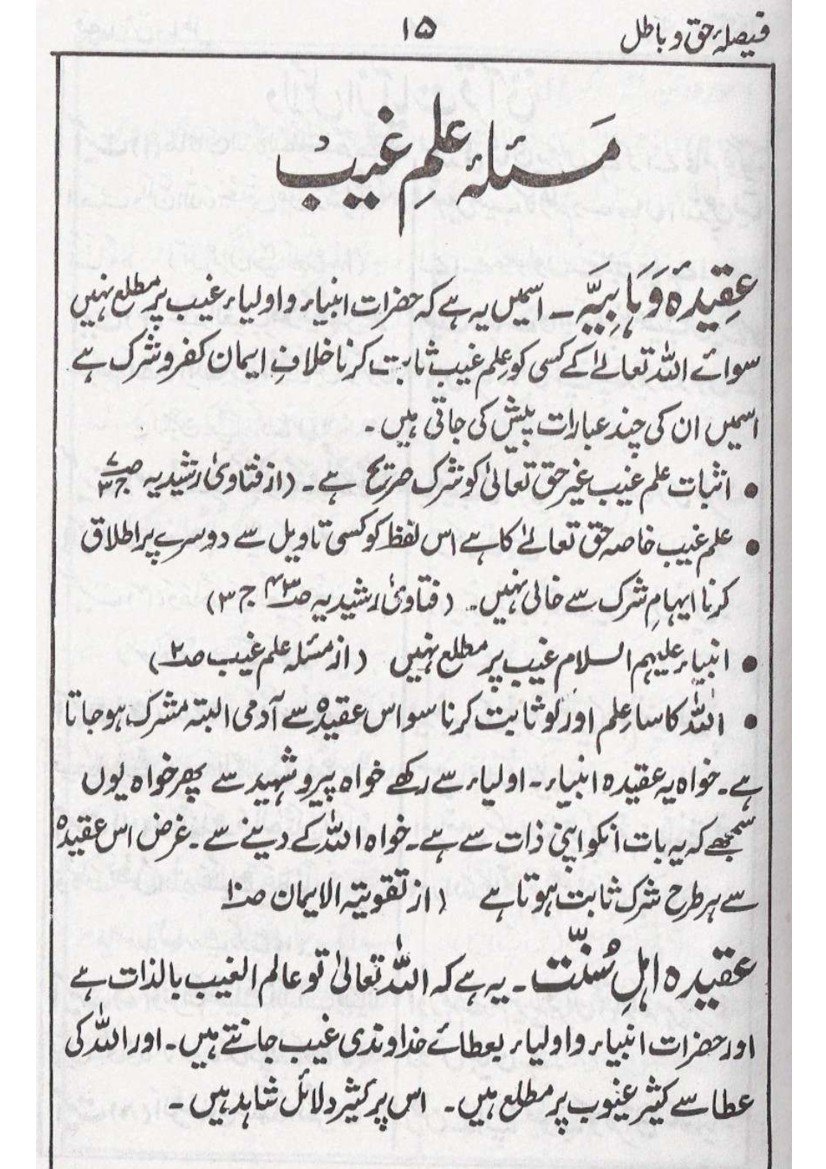 فیصلۂ حق و باطل ۱۵
مَسئلۂ علمِ غیب
عقیدۂ وَہابِیَّہ ۔ اسمیں یہ ہے کہ حضرات انبیاء و اولیاء غیب پر مطلع نہیں
سوائے اللہ تعالےٰ کے کسی کو علم غیب ثابت کرنا خلافِ ایمان کفر و شرک ہے
اسمیں ان کی چند عبارات پیش کی جاتی ہیں ۔
• اثبات علم غیب غیر حق تعالیٰ کو شرک صریح ہے ۔ (از فتاویٰ رشیدیہ
• علم غیب خاصہ حق تعالےٰ کا ہے اس لفظ کو کسی تاویل سے دوسرے پر اطلاق
کرنا ایہامِ شرک سے خالی نہیں ۔ (فتاویٰ رشیدیہ صـ۴۳ ج ۳)
• انبیاء علیہم السلام غیب پر مطلع نہیں (از مسئلہ علم غیب صـ۲)
• اللہ کا سا علم اور کو ثابت کرنا سو اس عقیدہ سے آدمی البتہ مشرک ہو جاتا
ہے ۔ خواہ یہ عقیدہ انبیاء ۔ اولیاء سے رکھے خواہ پیر و شہید سے پھر خواہ یوں
سمجھے کہ یہ بات انکو اپنی ذات سے ہے ۔ خواہ اللہ کے دینے سے ۔ غرض اس عقیدہ
سے ہر طرح شرک ثابت ہوتا ہے (از تقویتہ الایمان صـ۱۰
عقیدہ اہلِ سُنّت ۔ یہ ہے کہ اللہ تعالیٰ تو عالم الغیب بالذات ہے
اور حضرات انبیاء و اولیاء بعطائے خداوندی غیب جانتے ہیں ۔ اور اللہ کی
عطا سے کثیر غیوب پر مطلع ہیں ۔ اس پر کثیر دلائل شاہد ہیں ۔